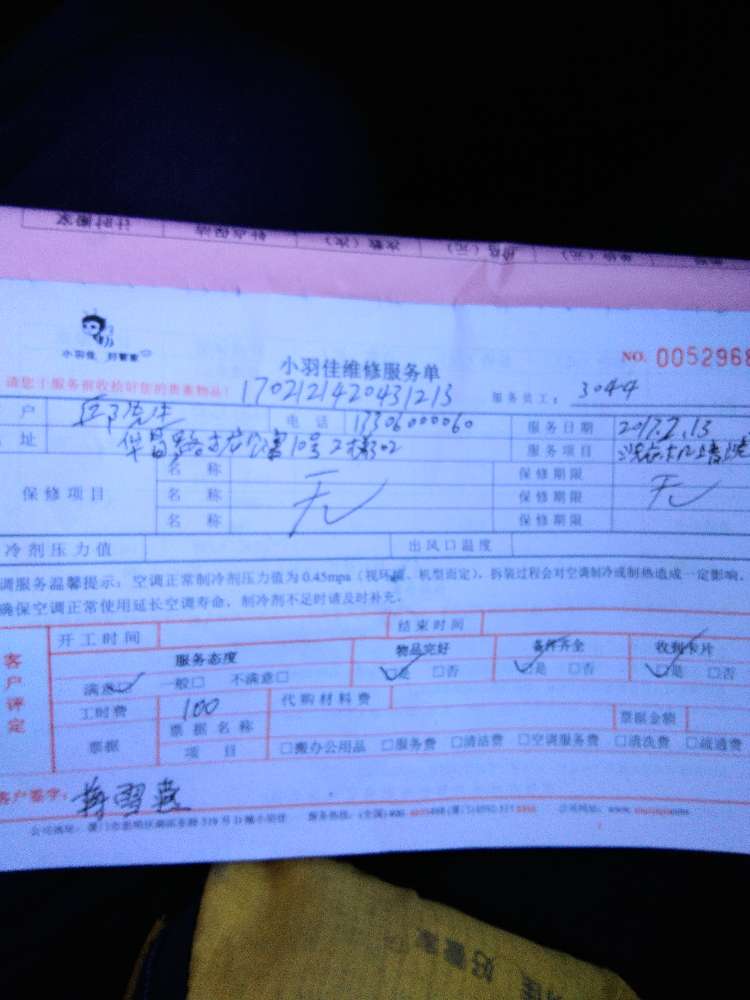 小羽佳 好管家
小羽佳维修服务单
NO. 0052968
请您于服务前收拾好您的贵重物品!
1702121420431213
服务员工: 3044
户 先生 电话 13306000060 服务日期 2017.2.13
址 华昌路 10号2梯302 服务项目
保修项目 名称 无 保修期限 无
名称 保修期限
名称 保修期限
冷剂压力值 出风口温度
调服务温馨提示: 空调正常制冷剂压力值为0.45mpa (视环境、机型而定), 拆装过程会对空调制冷或制热造成一定影响,
确保空调正常使用延长空调寿命, 制冷剂不足时请及时补充。
客户评定
开工时间 结束时间
服务态度 物品完好 备件齐全 收到卡片
满意☑ 一般□ 不满意□ ☑是 □否 ☑是 □否 ☑是 □否
工时费 100 代购材料费
票据 票据名称 票据金额
项目 □搬办公用品 □服务费 □清洁费 □空调服务费 □清洗费 □疏通费
客户签字:
公司地址: 厦门市思明区湖滨东路319号D
服务热线:
公司网址:
好管家